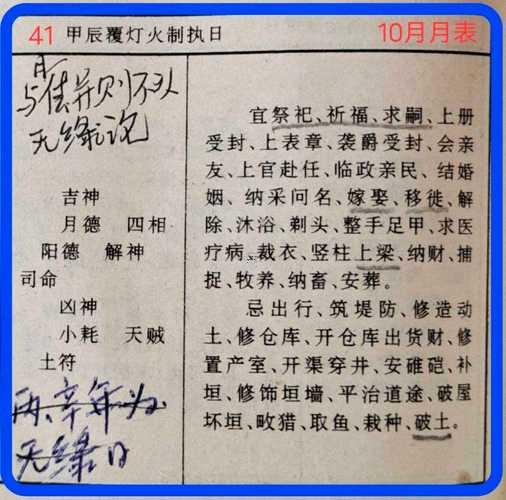 41 甲辰覆灯火制执日
10月月表
月
与债并则不以
无绛论
吉神
月德 四相
阳德 解神
司命
凶神
小耗 天贼
土符
丙、辛年为
无绛日
宜祭祀、祈福、求嗣、上册
受封、上表章、袭爵受封、会亲
友、上官赴任、临政亲民、结婚
姻、纳采问名、嫁娶、移徙、解
除、沐浴、剃头、整手足甲、求医
疗病、裁衣、竖柱上梁、纳财、捕
捉、牧养、纳畜、安葬。
忌出行、筑堤防、修造动
土、修仓库、开仓库出货财、修
置产室、开渠穿井、安碓硙、补
垣、修饰垣墙、平治道途、破屋
坏垣、畋猎、取鱼、栽种、破土。